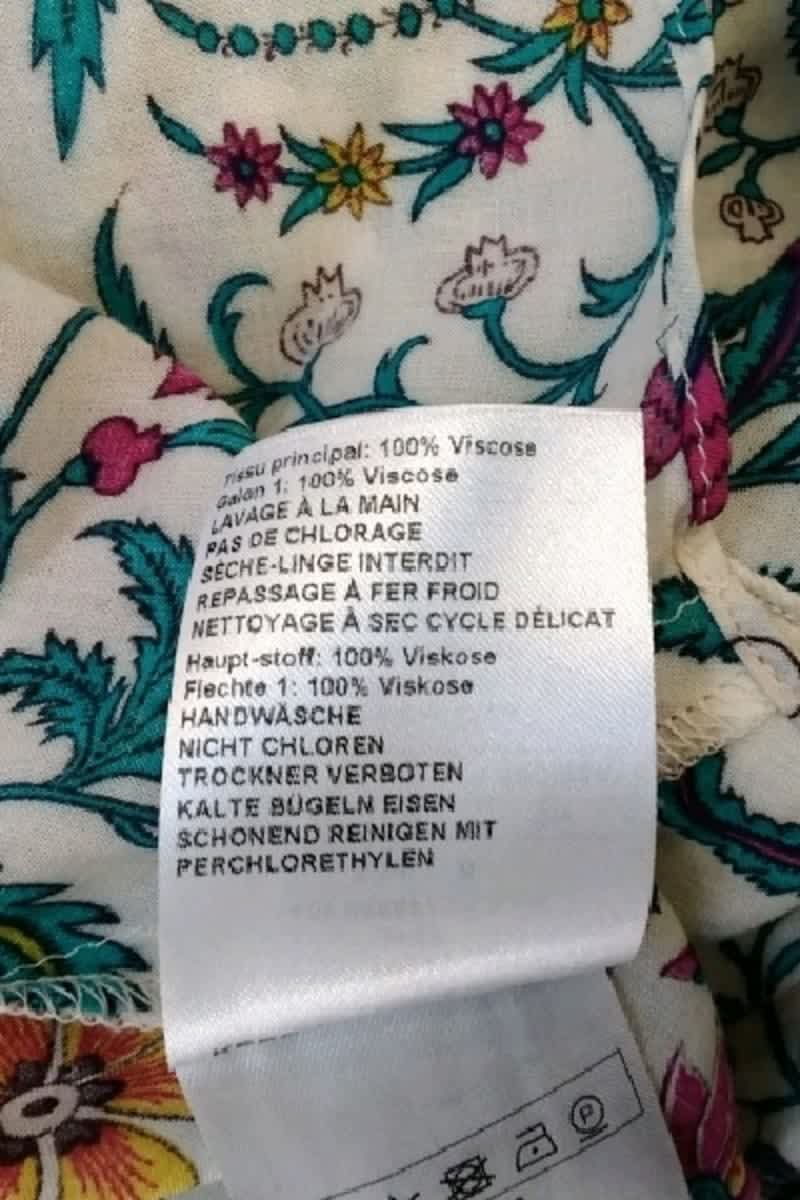 Tissu principal: 100% Viscose
Galon 1: 100% Viscose
LAVAGE À LA MAIN
PAS DE CHLORAGE
SÈCHE-LINGE INTERDIT
REPASSAGE À FER FROID
NETTOYAGE À SEC CYCLE DÉLICAT
Haupt-stoff: 100% Viskose
Flechte 1: 100% Viskose
HANDWÄSCHE
NICHT CHLOREN
TROCKNER VERBOTEN
KALTE BÜGELN EISEN
SCHONEND REINIGEN MIT
PERCHLORETHYLEN
P